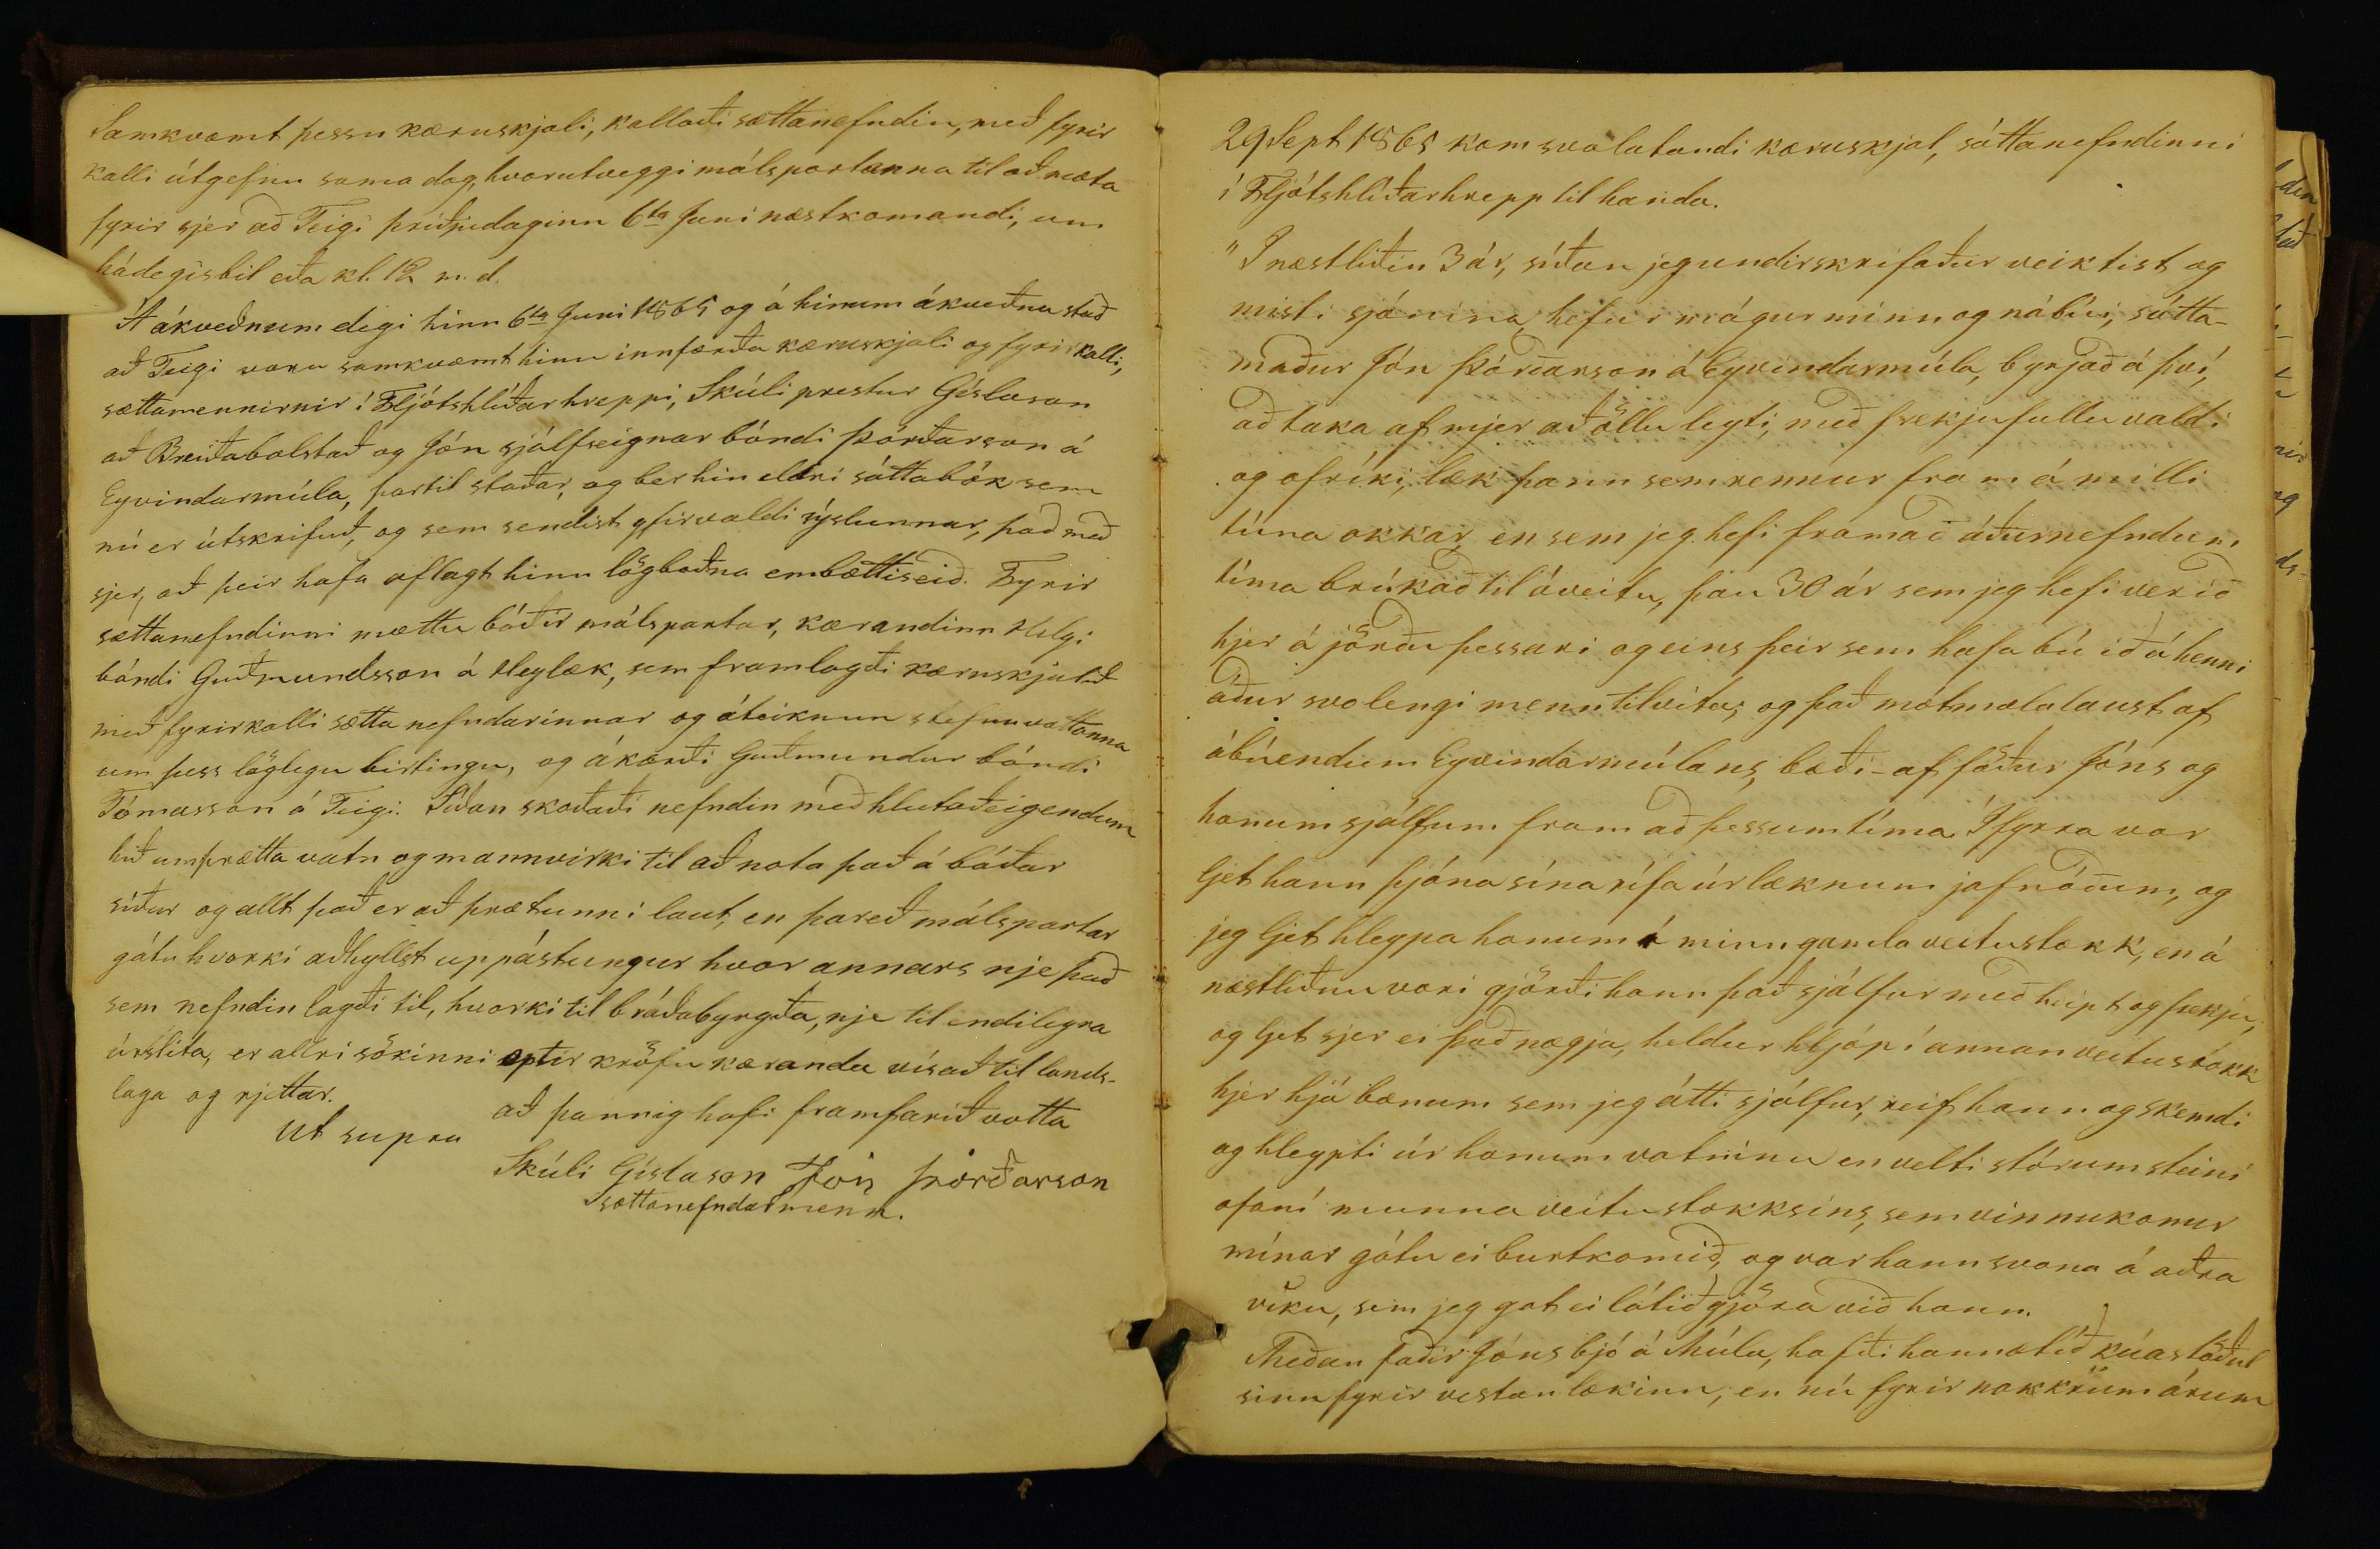 Samkvæmt þessu kæruskjali, kallaði sættanefndin, með fyrir
kalli útgefnu sama dag, hvorutveggi málspartanna til að mæta
fyrir sjer að Teigi þriðjudaginn 6ta Juni næstkomandi, um
hádegisbil eða kl. 12 m. d.
Á ákveðnum degi hinn 6ta Juni 1865 og á hinum ákveðna stað
að Teigi voru samkvæmt hinu innfærða kæruskjali og fyrirkalli,
sættamennirnir í Fljótshlíðarhreppi, Skúli prestur Gíslason
að Breiðabolstað og Jón sjálfseignarbóndi Þórðarson á
Eyvindarmúla, þartil staðar, og ber hin eldri sáttabók sem
nú er útskrifuð, og sem sendist yfirvaldi sýslunnar, það með
sjer, að þeir hafa aflagt hinn lögboðna embættiseið. Fyrir
sættanefndinni mættu báðir málspartar, kærandinn Helgi
bóndi Guðmundsson á Heylæk, sem framlagði kæruskjalið
með fyrirkalli sættanefndarinnar og áteiknun stefnuvottanna
um þess löglegu birtingu, og ákærði Guðmundur bóndi
Tómasson á Teigi. Síðan skoðaði nefndin með hlutaðeigendum
hið umþrætta vatn og mannvirki til að nota það á báðar
síður og allt það er að þrætunni laut, en þareð málspartar
gátu hvorki aðhyllst uppástungur hvor annars nje það
sem nefndin lagði til, hvorki til bráðabyrgða, nje til endilegra
úrslita, er allri sökinni eptir kröfu kæranda vísað til lands-
laga og rjettar.
að þannig hafi framfarið votta
Ut supra
Skúli Gíslason Jón Þórðarson
sættanefndarmenn.
29 Sept 1865 kom svolatandi kæruskjal, sáttanefndinni
í Fljótshlíðarhrepp til handa.
"Í næstliðin 3 ár, síðan jeg undirskrifaður veiktist og
misti sjónina, hefur mágur minn og nábúi, sátta-
maður Jón Þórðarson á Eyvindarmúla, byrjað á því,
að taka af mjer að öllu leyti, með frekjufullu valdi
og ofríki, læk þann sem rennur fram á milli
túna okkar, en sem jeg hefi framað áðurnefndum
tíma brúkað til áveitu, þau 30 ár sem jeg hefi verið
hjer á jörðu þessari og eins þeir sem hafa búið á henni
áður svo lengi menn tilvita; og það mótmælalaust af
ábúendum Eyvindarmúlans, bæði af föður Jóns og
honum sjálfum fram að þessum tíma. Í fyrra vor
ljet hann þjóna sína rífa úr læknum jafnóðum, og
jeg ljet hleypa honum á minn gamla veitustokk, en á
næstliðnu vori gjörði hann það sjálfur með heipt og frekju,
og ljet sjer ei það nægja, heldur hljóp í annan veitustokk
hjer hjá bænum sem jeg átti sjálfur, reif hann og skemdi
og hleypti úr honum vatninu en velti stórum steini
ofaní munna veitustokksins, sem vinnukonur
mínar gátu ei burtkomið, og var hann svona á aðra
viku, sem jeg gat ei látið gjöra við hann.
Meðan faðir Jóns bjó á Múla, hafði hann ætíð kúastöðul
sinn fyrir vestan lækinn, en nú fyrir nokkrum árum